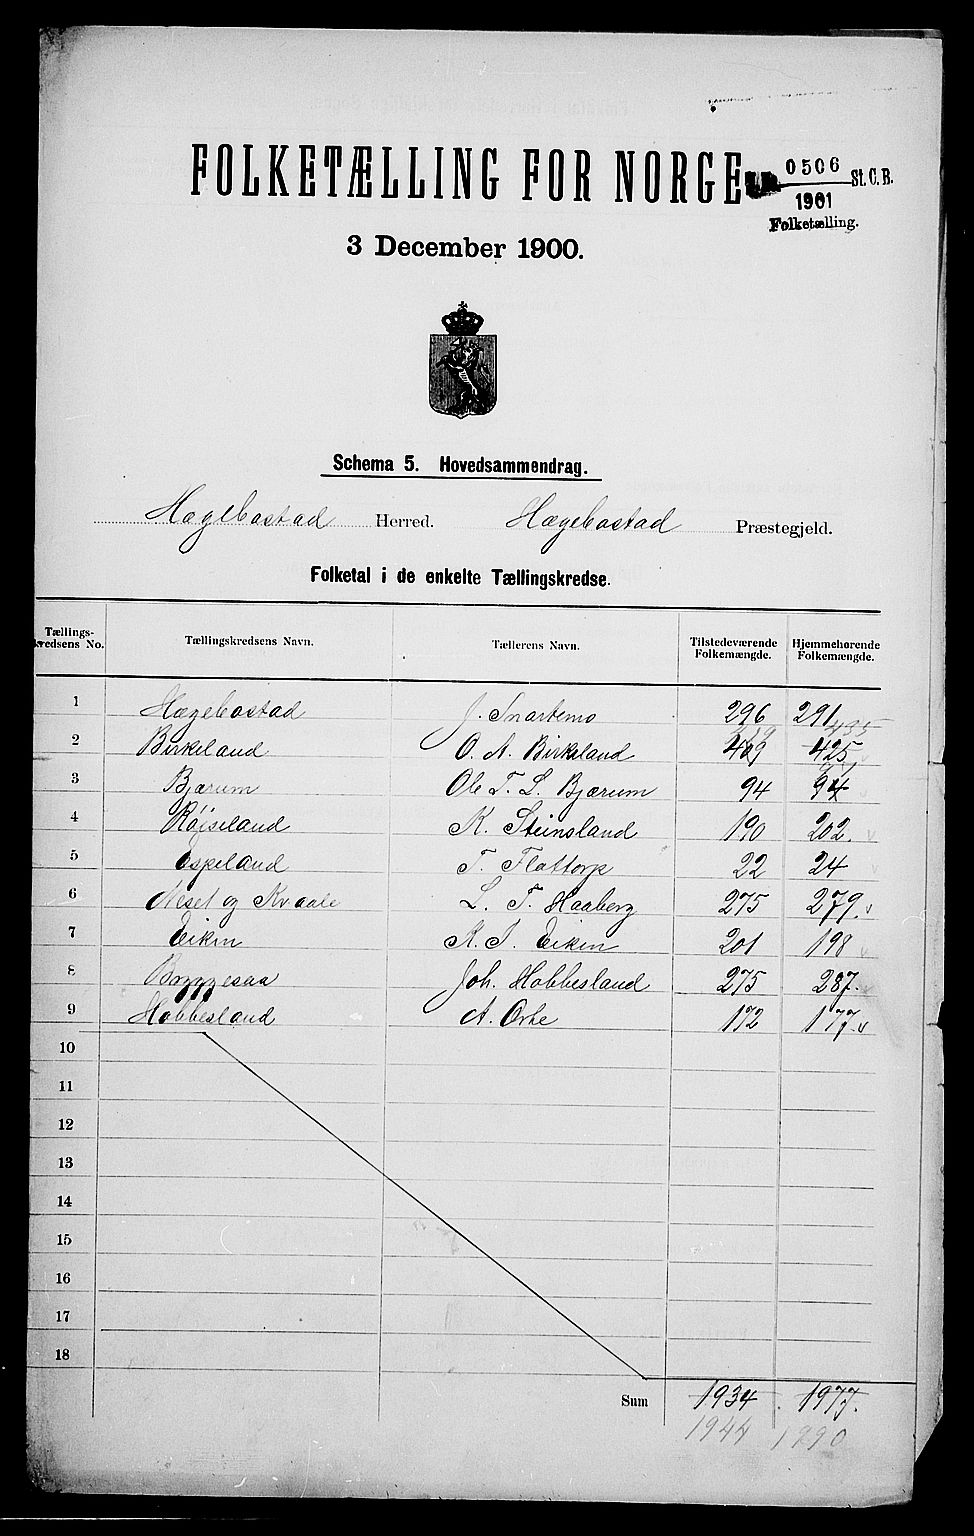 FOLKETÆLLING FOR NORGE
0506 St. C. B.
1901
Folketælling.
3 December 1900.
Schema 5. Hovedsammendrag.
Hægebostad Herred. Hægebostad Præstegjeld.
Folketal i de enkelte Tællingskredse.
Tællings-kredsens No. Tællingskredsens Navn. Tællerens Navn. Tilstedeværende Folkemængde. Hjemmehørende Folkemængde.
1 Hægebostad J. Snartemo 296 291
435
2 Birkeland O. A. Birkeland 409 425
3 Bjærum Ole T. L. Bjærum 94 94
4 Røiseland K. Steinsland 190 202.
5 Espeland T. Flottorp 22 24
6 Neset og Kvaale L. T. Haaberg 275 279.
7 Eiken K. T. Eiken 201 198
8 Bryggesaa Joh. Hobbesland 275 287.
9 Hobbesland A. Orke 172 177.
10
11
12
13
14
15
16
17
18
Sum 1934 1977.
1944 1990